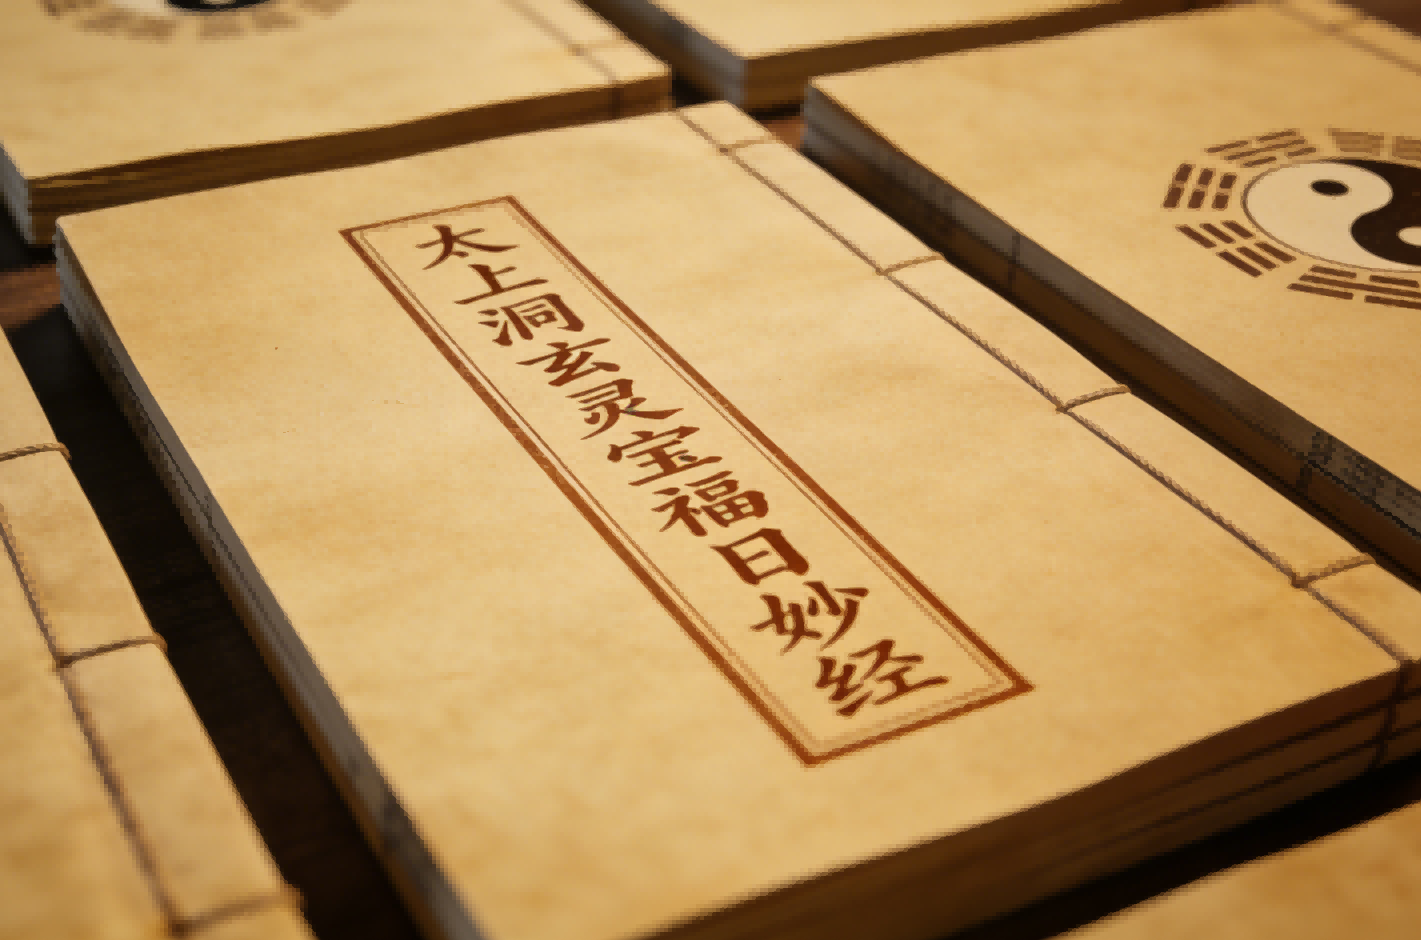 太上洞玄灵宝福日妙经